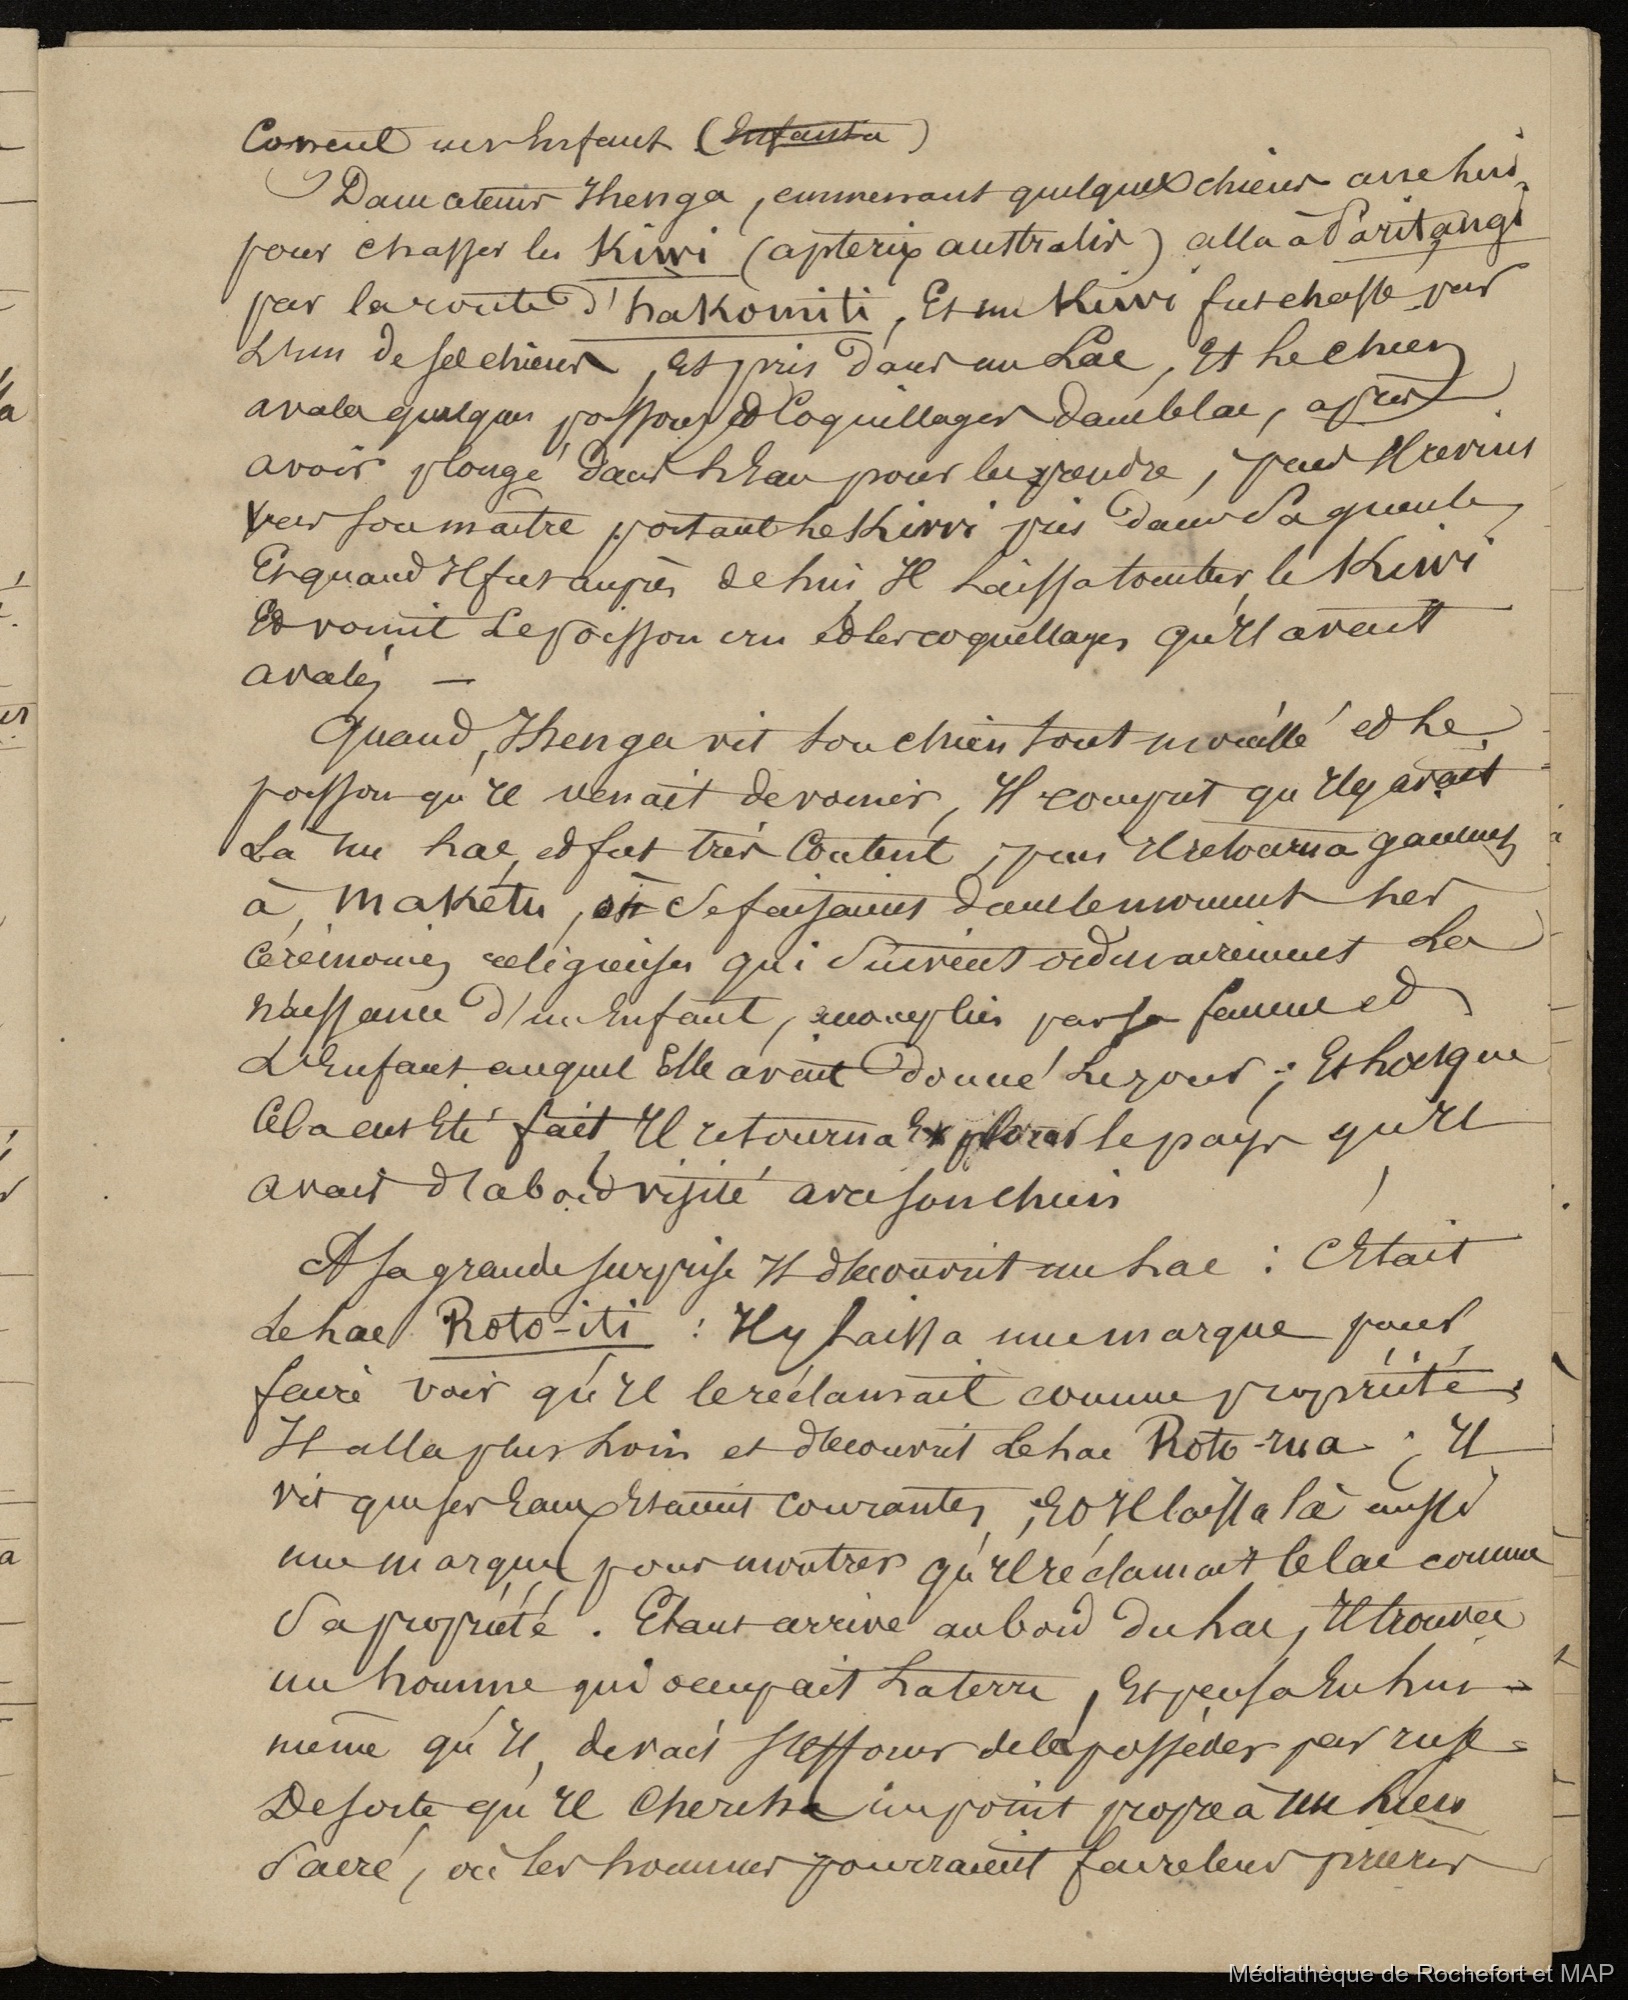 Conçut un Enfant (Enfanta)
Dans ce tems Ihenga, emmenant quelques chiens avec lui,
pour chasser les Kiwi (apterix australis) alla à Paritangi
par la route d'hakomiti, Et un Kiwi fut chassé par
L'un de ses chiens, et pris dans un Lac, et le chien
avala quelques poissons et Coquillages dans le lac, après
avoir plongé dans l'Eau pour les prendre, puis Il revint
vers son maître portant le Kiwi pris dans Sa gueule,
Et quand Il fut auprès de lui Il laissa tomber le Kiwi
Et vomit Le poisson cru et les coquillages qu'Il avait
avalés —
Quand, Ihenga vit son chien tout mouillé et le
poisson qu'Il venait de vomir, Il comprit qu'Il y avait
La un lac, et fut très Content, puis Il retourna gaiement
à Makétu, où Se faisaient dans le moment les
Cérémonies religieuses qui Suivent ordinairement La
naissance d'un Enfant, accomplies par sa femme et
L'Enfant auquel Elle avait donné Le jour ; Et lorsque
Cela eut Eté fait, Il retourna Explorer le pays qu'Il
avait d'abord visité avec son chien
A sa grande surprise Il découvrit un lac : C'Etait
Le lac Roto-iti : Il y laissa une marque pour
faire voir qu'Il le réclamait comme propriété,
Il alla plus loin et découvrit Le lac Roto-rua ; Il
vit que ses Eaux Etaient courantes ; Et Il laissa là aussi
une marque pour montrer qu'Il réclamait le lac comme
Sa propriété. Etant arrivé au bord du lac, Il trouva
un homme qui occupait La terre, Et pensa En lui-
même qu'Il, devait s'Efforcer de la posséder par ruse
De sorte qu'Il Chercha un point propre à un lieu
Sacré, où les hommes pourraient faire leurs prières
Médiathèque de Rochefort et MAP